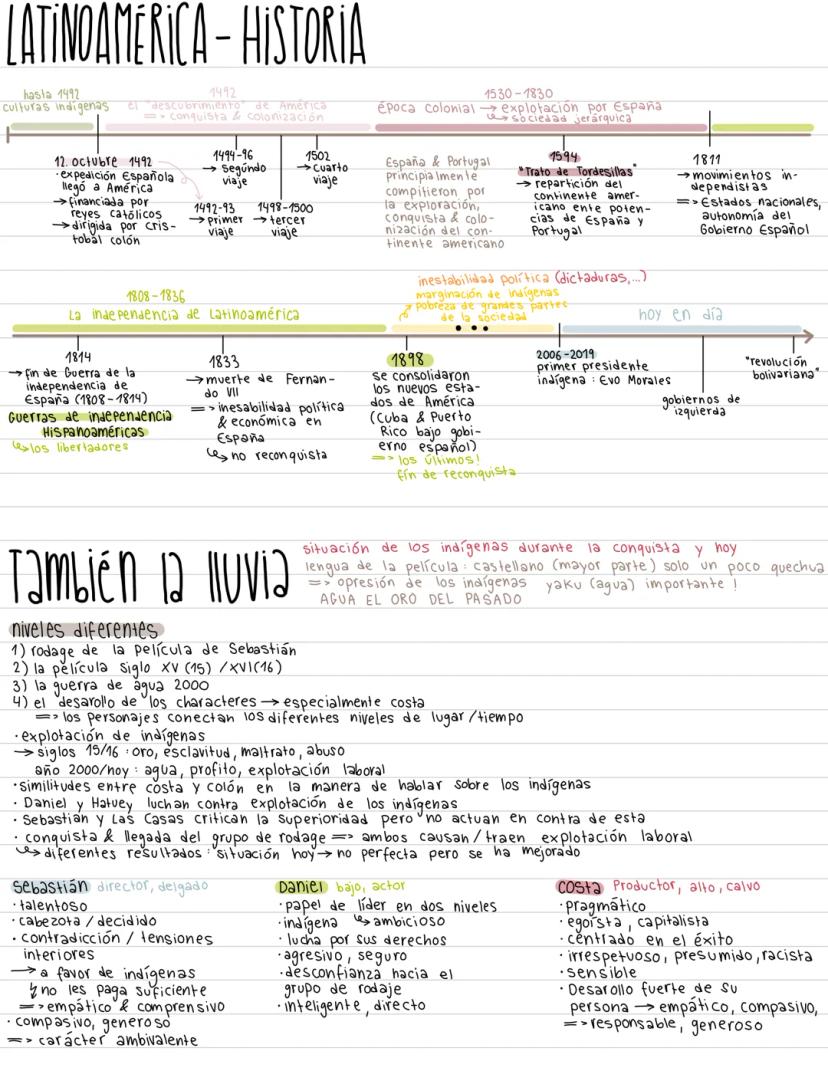 LATINOAMÉRICA - HISTORIA
hasta 1492
culturas indígenas
1492
el "descubrimiento" de América
=> conquista & colonización
1530-1830
época colonial → explotación por España
↳ sociedad jerárquica
12. octubre 1492
· expedición Española
llegó a América
→ financiada por
reyes católicos
→ dirigida por Cris-
tobal colón
1492-93
→ primer
viaje
1494-96
→ segundo
viaje
1498-1500
→ tercer
viaje
1502
→ cuarto
viaje
España & Portugal
principialmente
compitieron por
la exploración,
conquista & colo-
nización del con-
tinente americano
1594
"Trato de Tordesillas"
→ repartición del
continente amer-
icano ente poten-
cias de España y
Portugal
1811
→ movimientos in-
dependistas
=> Estados nacionales,
autonomía del
Gobierno Español
1808-1836
La independencia de Latinoamérica
inestabilidad política (dictaduras,...)
marginación de indígenas
pobreza de grandes partes
de la sociedad
hoy en día
1814
→ fin de Guerra de la
independencia de
España (1808-1814)
Guerras de independencia
Hispanoaméricas
↳ los libertadores
1833
→ muerte de Fernan-
do VII
=> inesabilidad política
& económica en
España
↳ no reconquista
1898
se consolidaron
los nuevos esta-
dos de América
(Cuba & Puerto
Rico bajo gobi-
erno español)
=> los últimos!
fin de reconquista
2006-2019
primer presidente
indígena : Evo Morales
gobiernos de
izquierda
"revolución
bolivariana"
También la lluvia
situación de los indígenas durante la conquista y hoy
lengua de la película : castellano (mayor parte) solo un poco quechua
=> opresión de los indígenas yaku (agua) importante !
AGUA EL ORO DEL PASADO
niveles diferentes
1) rodage de la película de Sebastián
2) la película siglo XV (15) / XVI (16)
3) la guerra de agua 2000
4) el desarollo de los characteres → especialmente costa
=> los personajes conectan los diferentes niveles de lugar / tiempo
· explotación de indígenas
→ siglos 15/16 : oro, esclavitud, maltrato, abuso
año 2000/hoy : agua, profito, explotación laboral
· similitudes entre costa y colón en la manera de hablar sobre los indígenas
· Daniel y Hatuey luchan contra explotación de los indígenas
· Sebastián y Las Casas critican la superioridad pero no actuan en contra de esta
· conquista & llegada del grupo de rodage => ambos causan / traen explotación laboral
↳ diferentes resultados : situación hoy → no perfecta pero se ha mejorado
Sebastián director, delgado
· talentoso
· cabezota / decidido
· contradicción / tensiones
interiores
→ a favor de indígenas
↯ no les paga suficiente
=> empático & comprensivo
· compasivo, generoso
=> carácter ambivalente
Daniel bajo, actor
· papel de líder en dos niveles
· indígena ↳ ambicioso
· lucha por sus derechos
· agresivo, seguro
· desconfianza hacia el
grupo de rodaje
· inteligente, directo
costa Productor, alto, calvo
· pragmático
· egoísta, capitalista
· centrado en el éxito
· irrespetuoso, presumido, racista
· sensible
· Desarollo fuerte de su
persona → empático, compasivo,
=> responsable, generoso